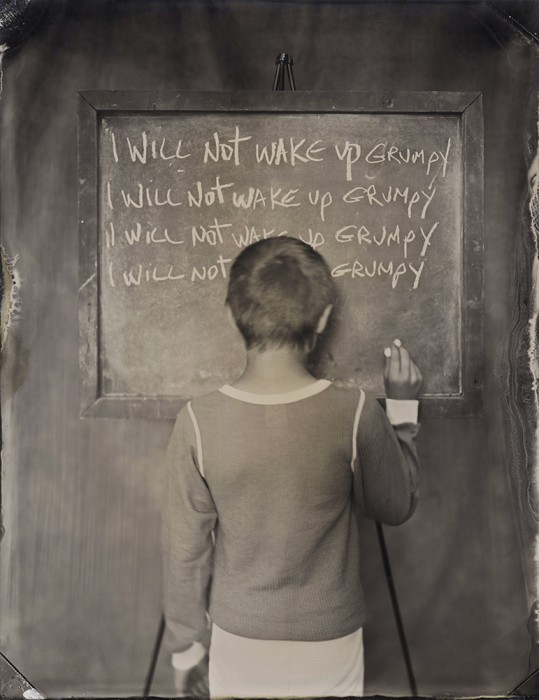 I WILL Not WAKE up GRUMPY
I WILL Not WAKE up GRUMPY
I WILL NOT WAKE up GRUMPY
I WILL NOT GRUMPY